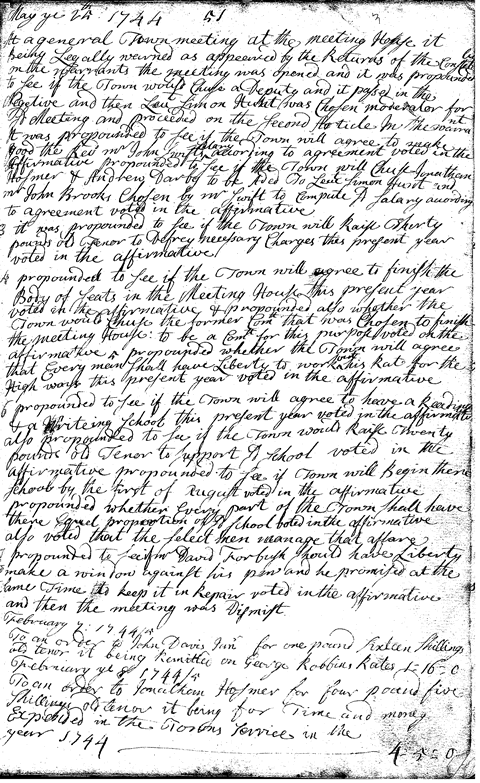 May ye 24th: 1744 51
At a general Town meeting at the meeting House it
being Legally warned as appeared by the Returns of the Constabls
on the warrants the meeting was opened and it was propounded
to see if the Town would Chuse a Deputy and it passd in the
Negitive and then Leut Simon Hunt was Chosen moderator for
sd Meeting and proceeded on the second Article In the warrant
It was propounded to see if the Town will agree to make
good the Revd mr John Swifts salary according to agreement voted in the
affirmative propounded to see if the Town will Chuse Jonathan
Hosmer & Andrew Darby to be Aded To Leut Simon Hunt and
mr John Brooks Chosen by mr Swift to Compute sd Salary acording
to agreement voted in the affirmative
3 it was propounded to see if the Town will Raise Thirty
pounds old Tenor to Defrey necessary Charges this present year
voted in the affirmative
4 propounded to see if the Town will agree to finish the
Body of seats in the Meeting House this present year
voted in the affirmative & propounded also whether the
Town would Chuse the former Com that was Chosen to finish
the meeting House: to be a Comt for this purpose voted on the
affirmative 5 propounded whether the Town will agree
that Every man shall have Liberty to work out his Rat for the
High ways this present year voted in the affirmative
6 propounded to see if the Town will agree to have a Reading
& a Writeing School this present year voted in the affirmative
also propounded to see if the Town would Raise Twenty
pounds old Tenor to support sd school voted in the
affirmative propounded to see if Town will Begin there
school by the first of August voted in the affirmative
propounded whether Every part of the Town shall have
there Equel proportion of sd school voted in the affirmative
also voted that the select men manage that affare
7 propounded to see if mr David Forbush should have Liberty
to make a window against his pew and he promised at the
same Time to keep it in Repair voted in the affirmative
and then the meeting was Dismist
February y: 1744/5
To an order to John Davis Junr for one pound sixteen shillings
old tenor it being Remitted on George Robbins Rates 1-16-0
February ye 1744/5
To an order to Jonathan Hosmer for four pound five
shillings old tenor it being for Time and money
Expended in the Towns service in the
year 1744 4-5-0